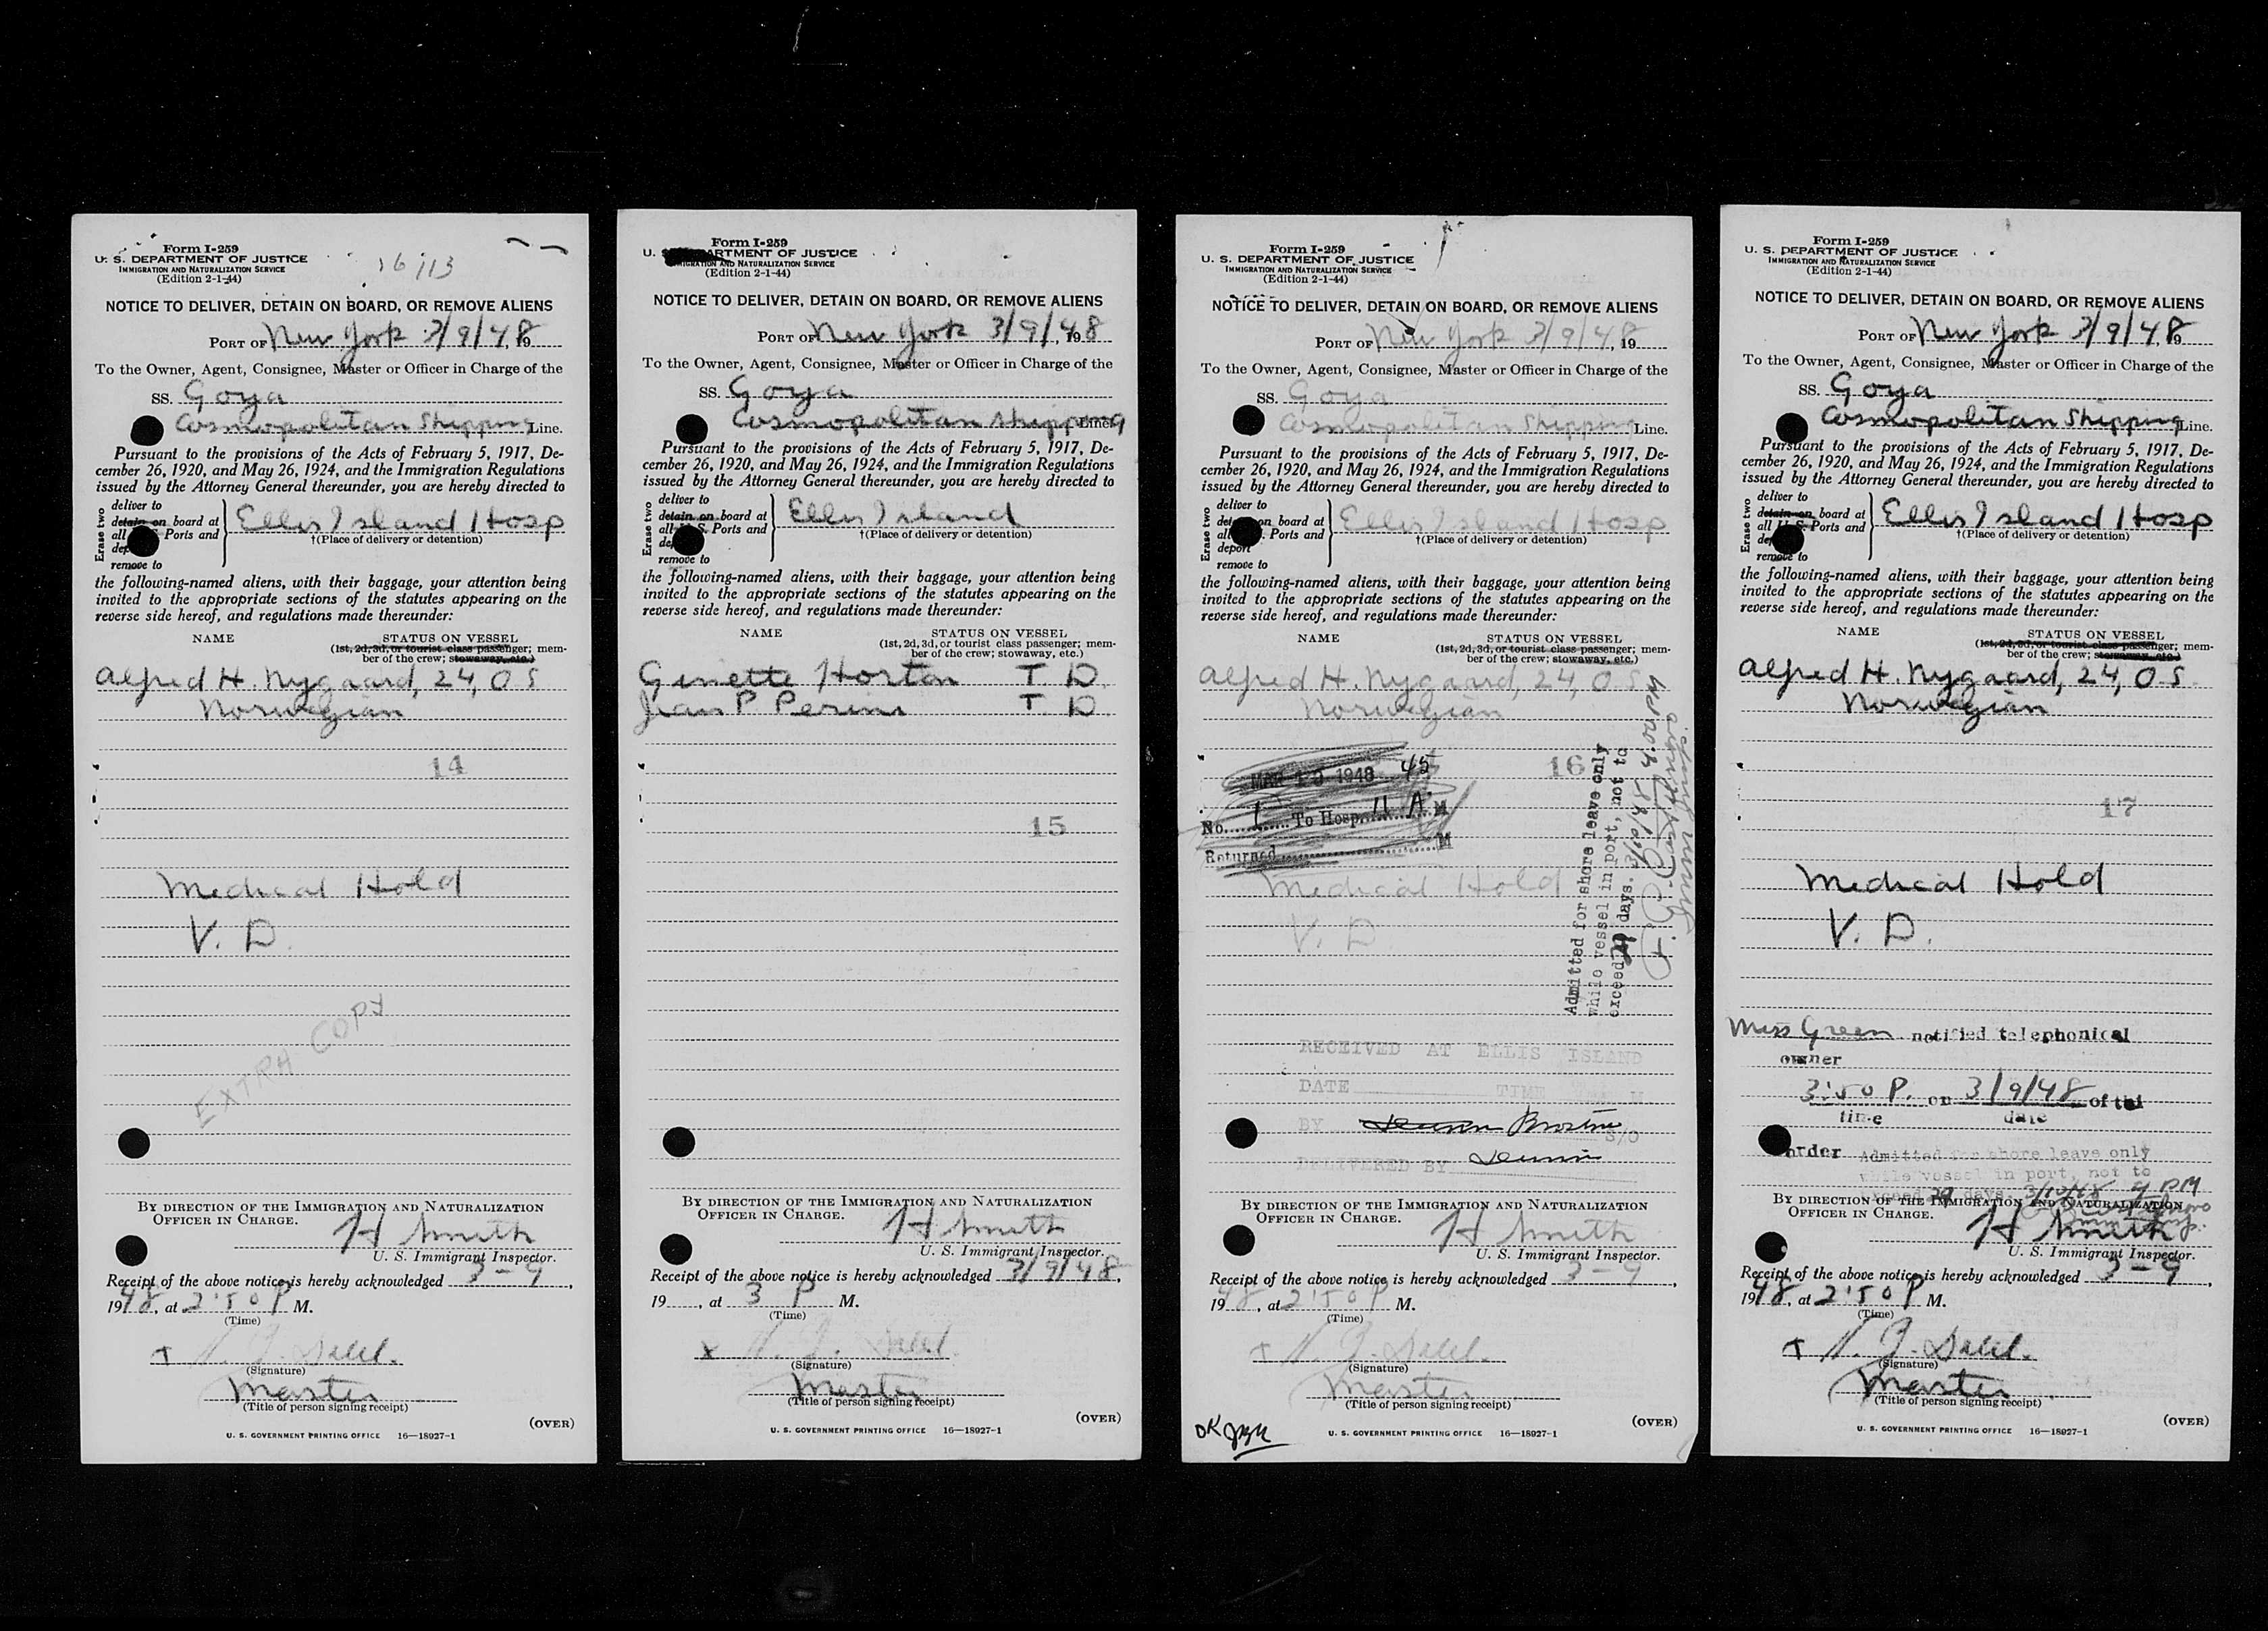 Form I-259
U. S. DEPARTMENT OF JUSTICE
IMMIGRATION AND NATURALIZATION SERVICE
(Edition 2-1-44)
16/13
NOTICE TO DELIVER, DETAIN ON BOARD, OR REMOVE ALIENS
PORT OF New York 3/9/48, 19
To the Owner, Agent, Consignee, Master or Officer in Charge of the
SS. Goya
Cosmopolitan Shipping Line.
Pursuant to the provisions of the Acts of February 5, 1917, De-
cember 26, 1920, and May 26, 1924, and the Immigration Regulations
issued by the Attorney General thereunder, you are hereby directed to
Erase two
deliver to
detain on board at
all Ports and
remove to
Ellis Island Hosp
†(Place of delivery or detention)
the following-named aliens, with their baggage, your attention being
invited to the appropriate sections of the statutes appearing on the
reverse side hereof, and regulations made thereunder:
NAME STATUS ON VESSEL
(1st, 2d, 3d, or tourist class passenger; mem-
ber of the crew; stowaway, etc.)
Alfred H. Nygaard, 24, O S
Norwegian
14
Medical Hold
V. D.
EXTRA COPY
BY DIRECTION OF THE IMMIGRATION AND NATURALIZATION
OFFICER IN CHARGE.
H Smith
U. S. Immigrant Inspector.
Receipt of the above notice is hereby acknowledged 3-9,
1948, at 2:50 P M.
(Time)
(Signature)
Master
(Title of person signing receipt)
(OVER)
U. S. GOVERNMENT PRINTING OFFICE 16—18927-1
Form I-259
U. S. DEPARTMENT OF JUSTICE
IMMIGRATION AND NATURALIZATION SERVICE
(Edition 2-1-44)
NOTICE TO DELIVER, DETAIN ON BOARD, OR REMOVE ALIENS
PORT OF New York 3/9/48, 198
To the Owner, Agent, Consignee, Master or Officer in Charge of the
SS. Goya
Cosmopolitan Shipping Line.
Pursuant to the provisions of the Acts of February 5, 1917, De-
cember 26, 1920, and May 26, 1924, and the Immigration Regulations
issued by the Attorney General thereunder, you are hereby directed to
Erase two
deliver to
detain on board at
all U. S. Ports and
remove to
Ellis Island
†(Place of delivery or detention)
the following-named aliens, with their baggage, your attention being
invited to the appropriate sections of the statutes appearing on the
reverse side hereof, and regulations made thereunder:
NAME STATUS ON VESSEL
(1st, 2d, 3d, or tourist class passenger; mem-
ber of the crew; stowaway, etc.)
Ginette Horton T D
Jean P Perini T. D.
15
BY DIRECTION OF THE IMMIGRATION AND NATURALIZATION
OFFICER IN CHARGE.
H Smith
U. S. Immigrant Inspector.
Receipt of the above notice is hereby acknowledged 3/9/48,
19, at 3 P M.
(Time)
x
(Signature)
Master
(Title of person signing receipt)
(OVER)
U. S. GOVERNMENT PRINTING OFFICE 16—18927-1
Form I-259
U. S. DEPARTMENT OF JUSTICE
IMMIGRATION AND NATURALIZATION SERVICE
(Edition 2-1-44)
NOTICE TO DELIVER, DETAIN ON BOARD, OR REMOVE ALIENS
PORT OF New York 3/9/48, 19
To the Owner, Agent, Consignee, Master or Officer in Charge of the
SS. Goya
Cosmopolitan Shipping Line.
Pursuant to the provisions of the Acts of February 5, 1917, De-
cember 26, 1920, and May 26, 1924, and the Immigration Regulations
issued by the Attorney General thereunder, you are hereby directed to
Erase two
deliver to
on board at
all Ports and
deport
remove to
Ellis Island Hosp
†(Place of delivery or detention)
the following-named aliens, with their baggage, your attention being
invited to the appropriate sections of the statutes appearing on the
reverse side hereof, and regulations made thereunder:
NAME STATUS ON VESSEL
(1st, 2d, 3d, or tourist class passenger; mem-
ber of the crew; stowaway, etc.)
Alfred H. Nygaard, 24, O S
Norwegian
16
MAR 10 1948 45
No. 1 To Hosp. 11 A M
Returned M
Medical Hold
V. D
Admitted for shore leave only
while vessel in port, not to
exceed 29 days. 3/10/48
RECEIVED AT ELLIS ISLAND
DATE TIME M
BY S/O
DELIVERED BY
BY DIRECTION OF THE IMMIGRATION AND NATURALIZATION
OFFICER IN CHARGE.
H Smith
U. S. Immigrant Inspector.
Receipt of the above notice is hereby acknowledged 3-9,
1948, at 2:50 P M.
(Time)
(Signature)
Master
(Title of person signing receipt)
OK
(OVER)
U. S. GOVERNMENT PRINTING OFFICE 16—18927-1
Form I-259
U. S. DEPARTMENT OF JUSTICE
IMMIGRATION AND NATURALIZATION SERVICE
(Edition 2-1-44)
NOTICE TO DELIVER, DETAIN ON BOARD, OR REMOVE ALIENS
PORT OF New York 3/9/48, 19
To the Owner, Agent, Consignee, Master or Officer in Charge of the
SS. Goya
Cosmopolitan Shipping Line.
Pursuant to the provisions of the Acts of February 5, 1917, De-
cember 26, 1920, and May 26, 1924, and the Immigration Regulations
issued by the Attorney General thereunder, you are hereby directed to
Erase two
deliver to
detain on board at
all U. S. Ports and
remove to
Ellis Island Hosp
†(Place of delivery or detention)
the following-named aliens, with their baggage, your attention being
invited to the appropriate sections of the statutes appearing on the
reverse side hereof, and regulations made thereunder:
NAME STATUS ON VESSEL
(1st, 2d, 3d, or tourist class passenger; mem-
ber of the crew; stowaway, etc.)
Alfred H. Nygaard, 24, O S.
Norwegian
17
Medical Hold
V. D.
Miss Green notified telephonical
owner
3:50 P. on 3/9/48 of thi
time date
order Admitted for shore leave only
while vessel in port, not to
exceed 29 days. 3/10/48 4 PM
BY DIRECTION OF THE IMMIGRATION AND NATURALIZATION
OFFICER IN CHARGE.
H Smith
U. S. Immigrant Inspector.
Receipt of the above notice is hereby acknowledged 3-9,
1948, at 2:50 P M.
(Time)
(Signature)
Master
(Title of person signing receipt)
(OVER)
U. S. GOVERNMENT PRINTING OFFICE 16—18927-1